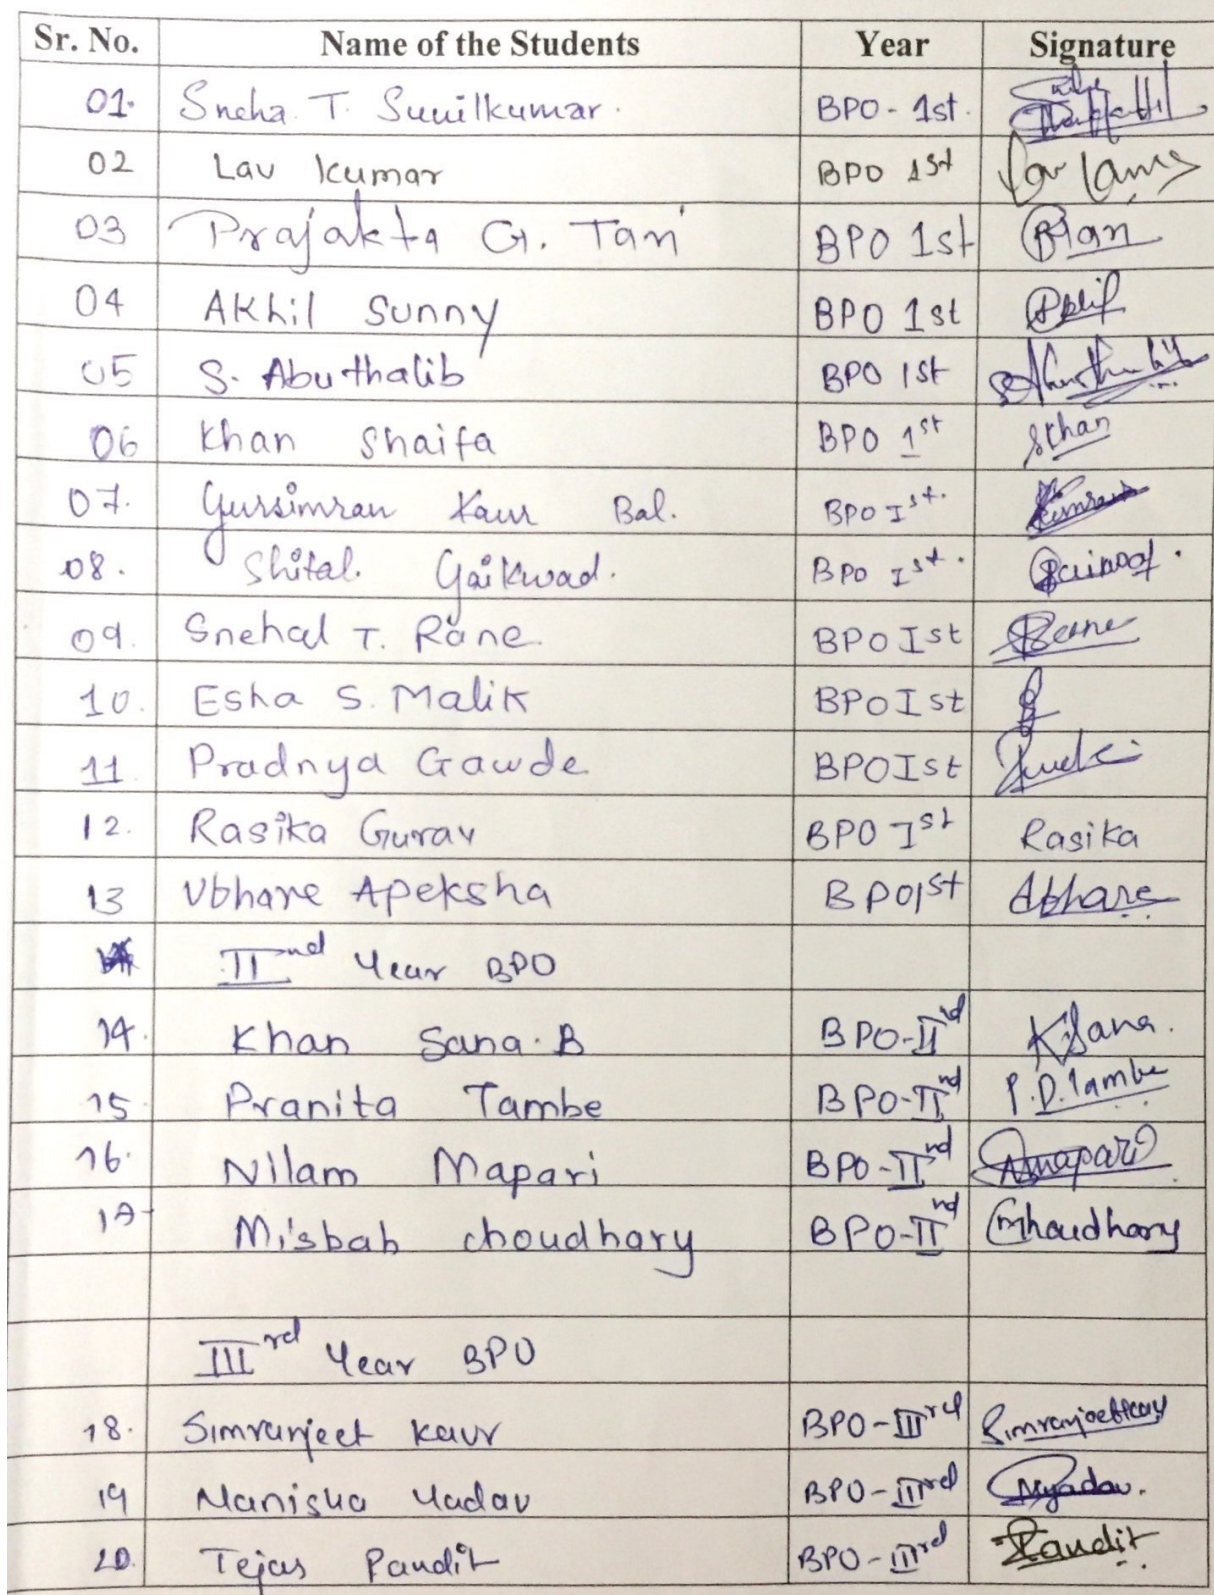 Sr. No. Name of the Students Year Signature
01. Sneha. T. Sunilkumar. BPO - 1st.
02 Lav Kumar BPO 1st
03 Prajakta G. Tari BPO 1st
04 Akhil Sunny BPO 1st
05 S. Abuthalib BPO 1st
06 Khan Shaifa BPO 1st SKhan
07. Gursimran Kaur Bal. BPO Ist.
08. Shital. Gaikwad. BPO Ist.
09. Snehal T. Rane. BPO Ist Rane
10. Esha S. Malik BPO Ist
11 Pradnya Gawde BPO Ist
12. Rasika Gurav BPO Ist Rasika
13 Ubhare Apeksha BPO 1st Ubhare
IInd Year BPO
14. Khan Sana. B BPO-IInd K.Sana.
15 Pranita Tambe BPO-IInd P.D.Tambe
16. Nilam Mapari BPO-IInd Nmapari
17 Misbah choudhary BPO-IInd Mchoudhary
IIIrd Year BPO
18. Simranjeet Kaur BPO-IIIrd Simranjeetkaur
19 Manisha Yadav BPO-IIIrd Myadav.
20. Tejas Pandit BPO-IIIrd Pandit